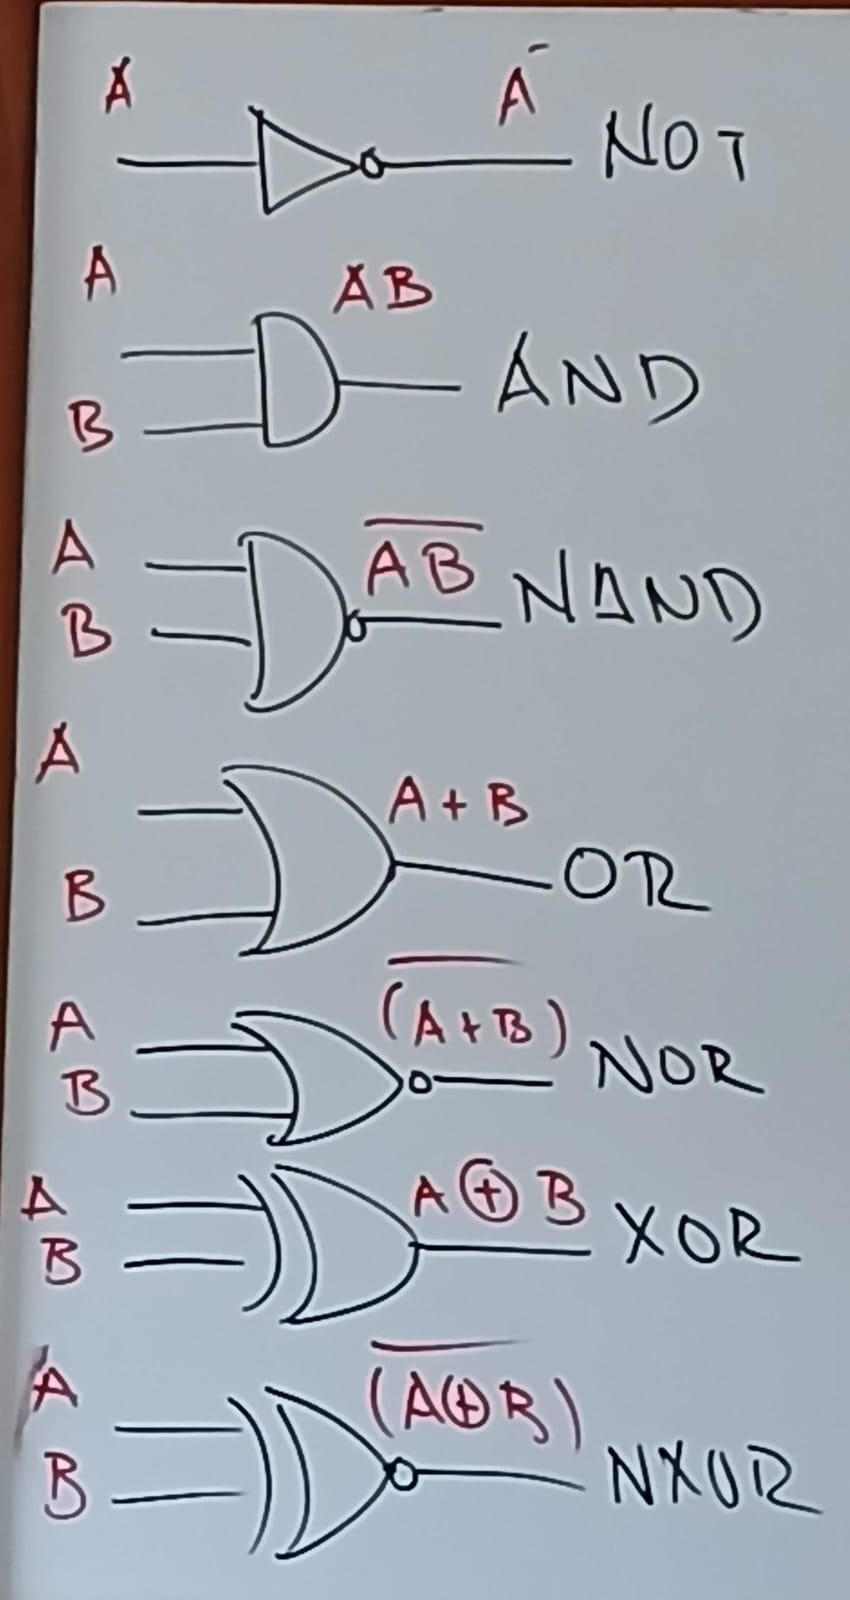 A Ā NOT
A
AB
B AND
A
B A̅B̅ NAND
A
A + B
B OR
A
B (A̅ ̅+̅ ̅B̅) NOR
A
B A ⊕ B XOR
A
B (A̅⊕̅B̅) NXOR